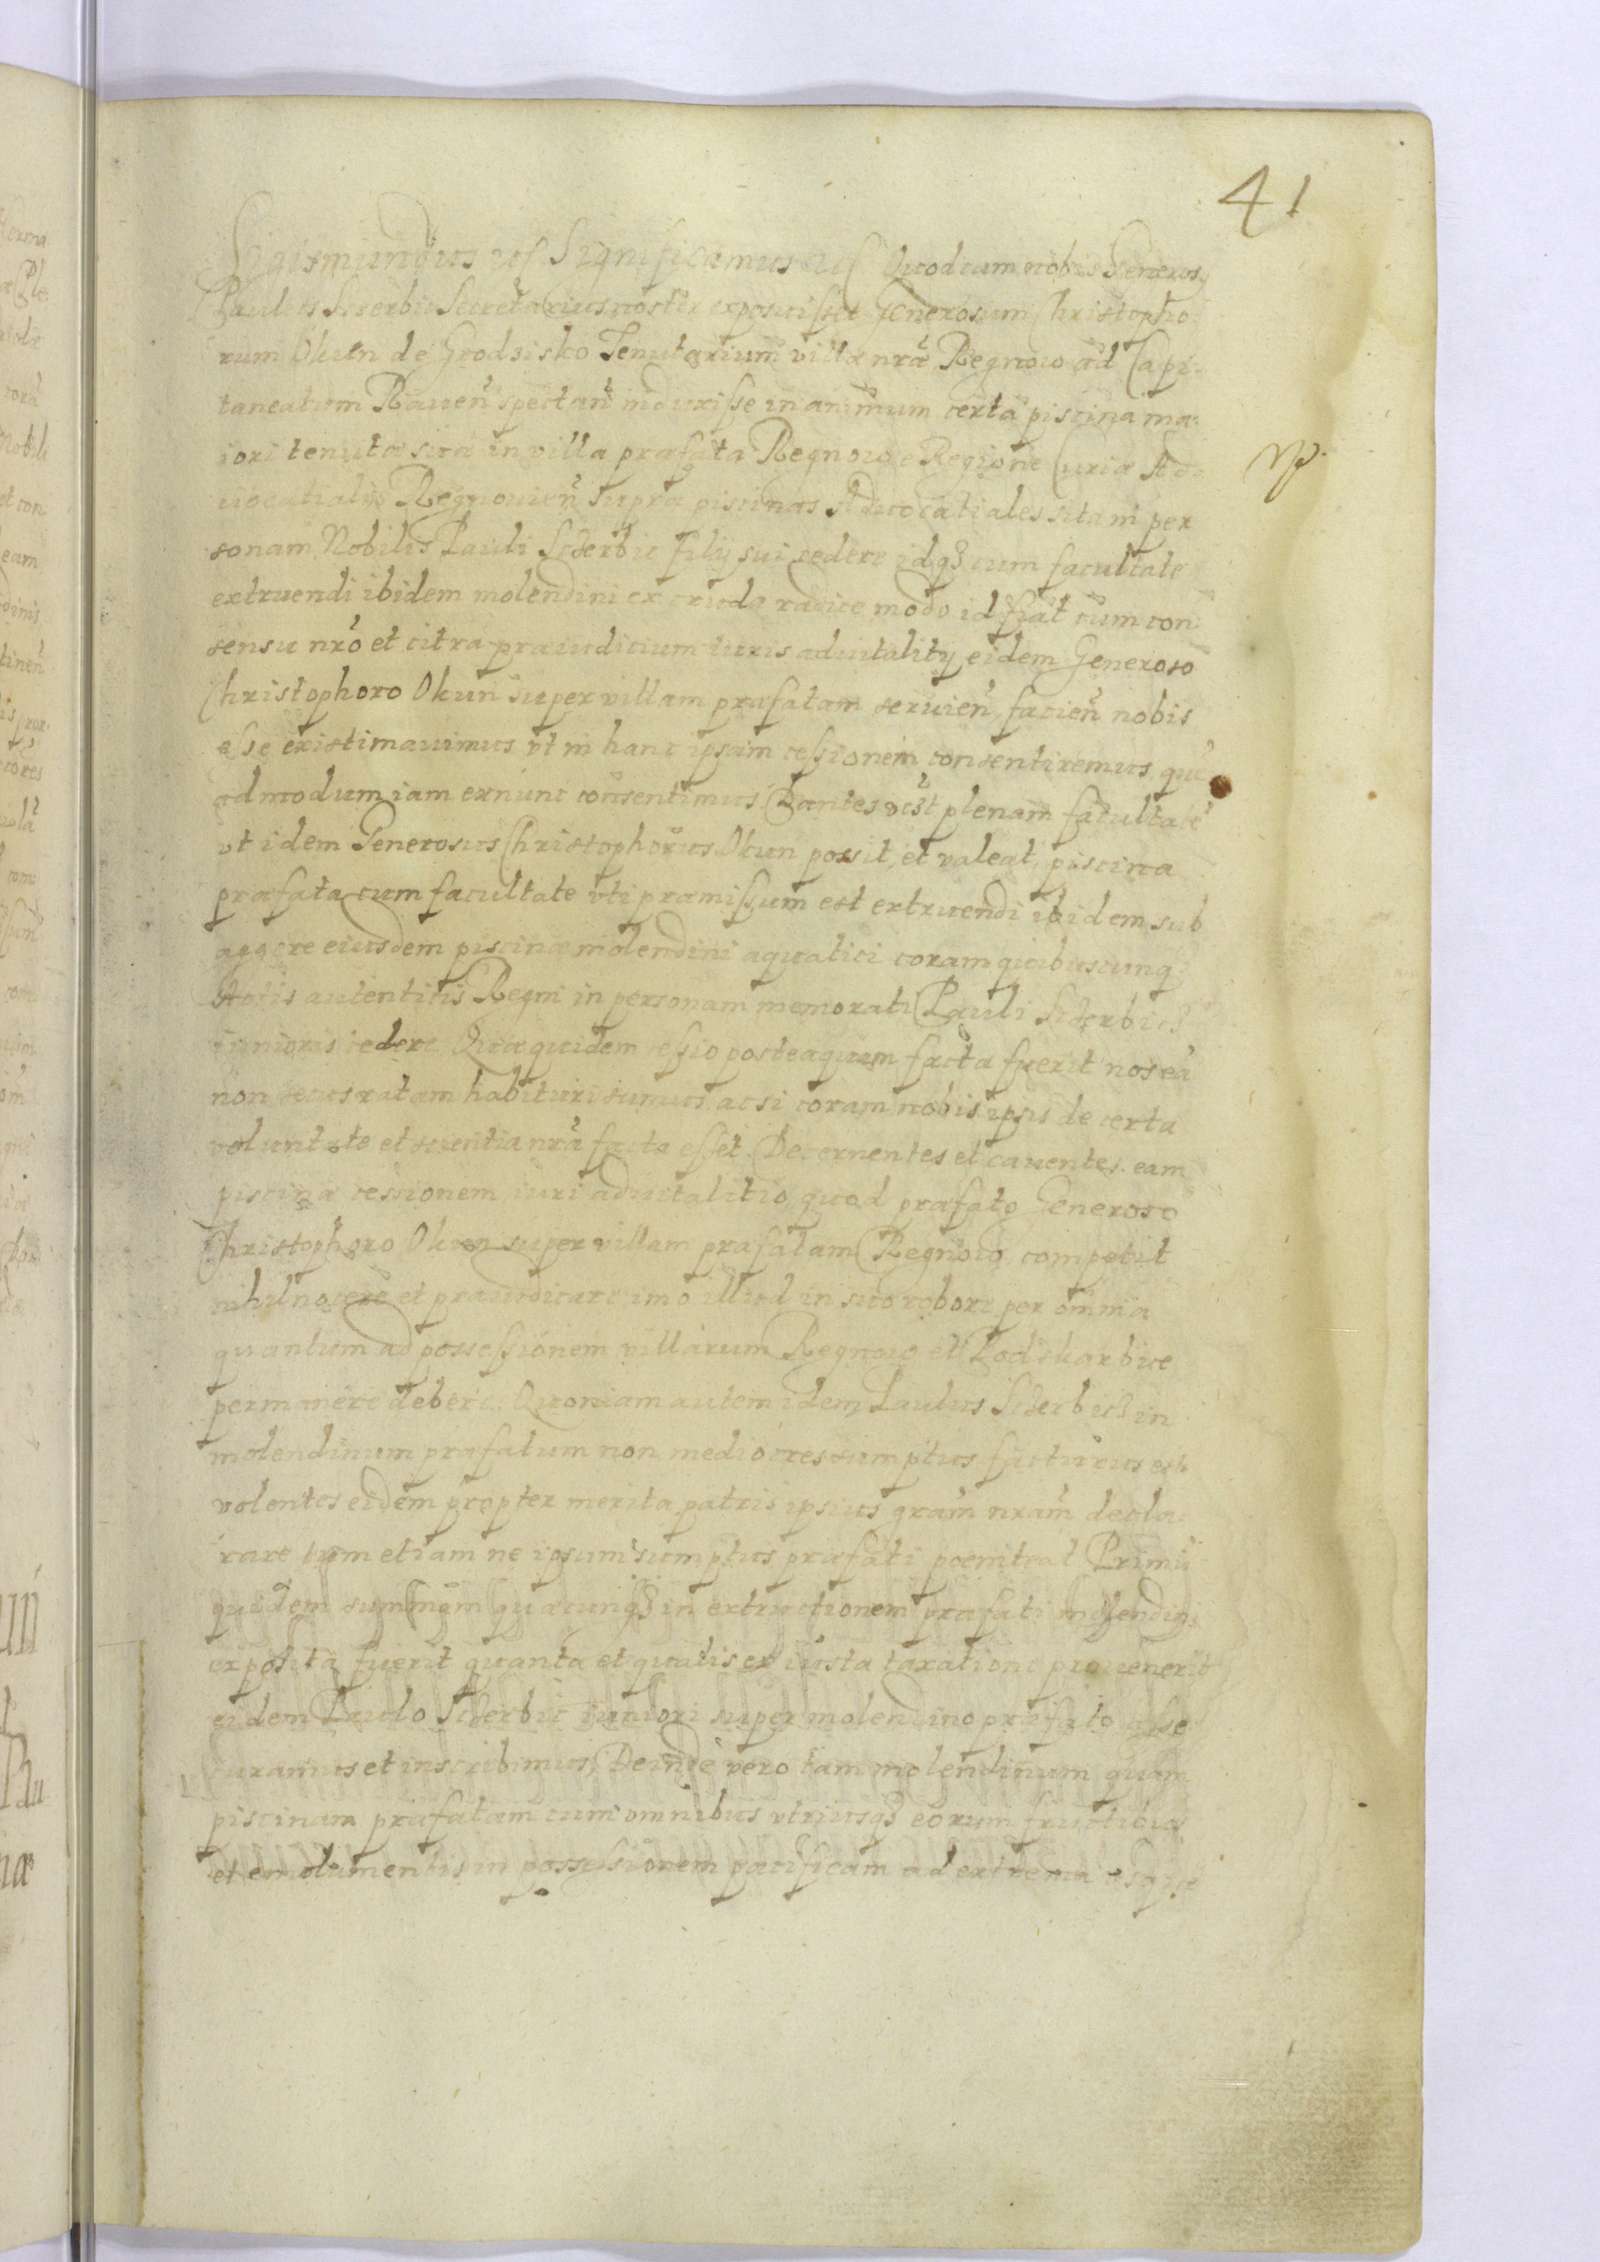 41
Sigismundus etc Significamus etc Quod cum nobis Generosus
Paulus Sczerbic Secretarius noster exposuisset Generosum Christopho
rum Okun de Grodzisko Tenutarium villæ nræ Regnow ad Capi-
taneatum Raven̄ spectan̄ induxisse in animum certa piscina ma-
iori tenutæ suæ in villa præfata Regnow e Regione Curiæ Ad-
uocatialis Regnovien̄ supra piscinas Aduocatiales sita in per
sonam Nobilis Pauli Sczerbic filij sui cedere idq3 cum facultate
extruendi ibidem molendini ex cruda radice modo id fiat cum con
sensu nrō et citra præiudicium iuris aduitalitij eidem Generoso
Christophoro Okun super villam præfatam seruien̄, facien̄ nobis
esse existimauimus vt in hanc ipsam cessionem consentiremus, quē
admodum iam exnunc consentimus Dantes plenam facultatē
vt idem Generosus Christophorus Okun possit, et valeat, piscina
præfata cum facultate vti præmissum est extruendi ibidem sub
aggere eiusdem piscinæ molendini aquatici coram quibuscunq
Actis autenticis Regni in personam memorati Pauli Sczerbicz
iunioris cedere Quæ quidem cessio posteaquam facta fuerit nos eā
non secus ratam habituri sumus, ac si coram nobis ipsis de certa
voluntate et scientia nrā facta esset. Decernentes et cauentes eam
piscinæ cessionem iuri aduitalitio, quod præfato Generoso
Christophoro Okun super villam præfatam Regnow competit
nihil nocere et præiudicare imo illud in suo robore per omnia
quantum ad possessionem villarum Regnow et Podskarbice
permanere debere. Quoniam autem idem Paulus Sczerbicz in
molendinum præfatum non mediocres sumptus facturus est
volentes eidem propter merita patris ipsius gram̄ nram̄ decla-
rare tum etiam ne ipsum sumptus præfati poeniteat Primū
quidem summam quæcunq3 in extructionem præfati molendini
exposita fuerit quanta et qualis ex iusta taxatione prouenerit
eidem Paulo Sczerbic iuniori super molendino præfato asse
curamus et inscribimus, Deinde vero tam molendinum quam
piscinam præfatam cum omnibus vtriusq3 eorum fructibus
et emolumentis in possessionem pacificam ad extrema